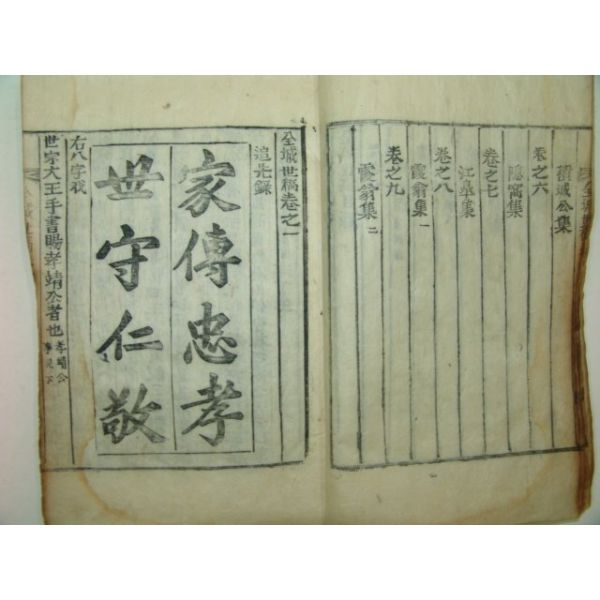 積城公集
卷之六
隱窩集
卷之七
江皐集
卷之八
霞翁集一
卷之九
霞翁集二
全城世稿卷之一
追先錄
家傳忠孝
世守仁敬
右八字我
世宗大王手書賜孝靖公者也
孝靖公